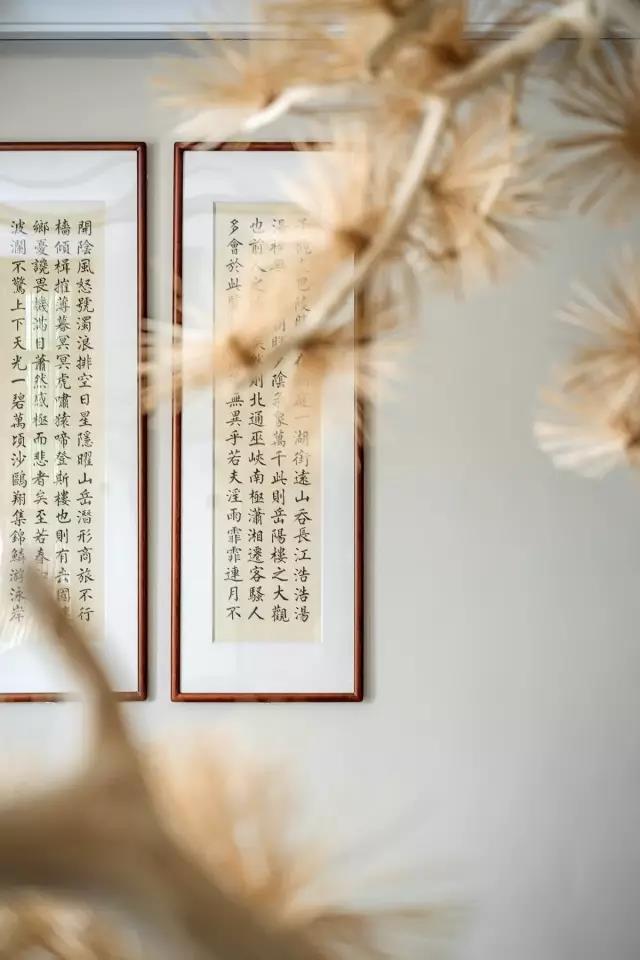 巴陵一湖銜遠山吞長江浩浩湯
陰氣象萬千此則岳陽樓之大觀
也前人之則北通巫峽南極瀟湘遷客騷人
多會於此無異乎若夫淫雨霏霏連月不
開陰風怒號濁浪排空日星隱曜山岳潛形商旅不行
檣傾楫摧薄暮冥冥虎嘯猿啼登斯樓也則有去國
鄉憂讒畏譏滿目蕭然感極而悲者矣至若春
波瀾不驚上下天光一碧萬頃沙鷗翔集錦鱗游泳岸